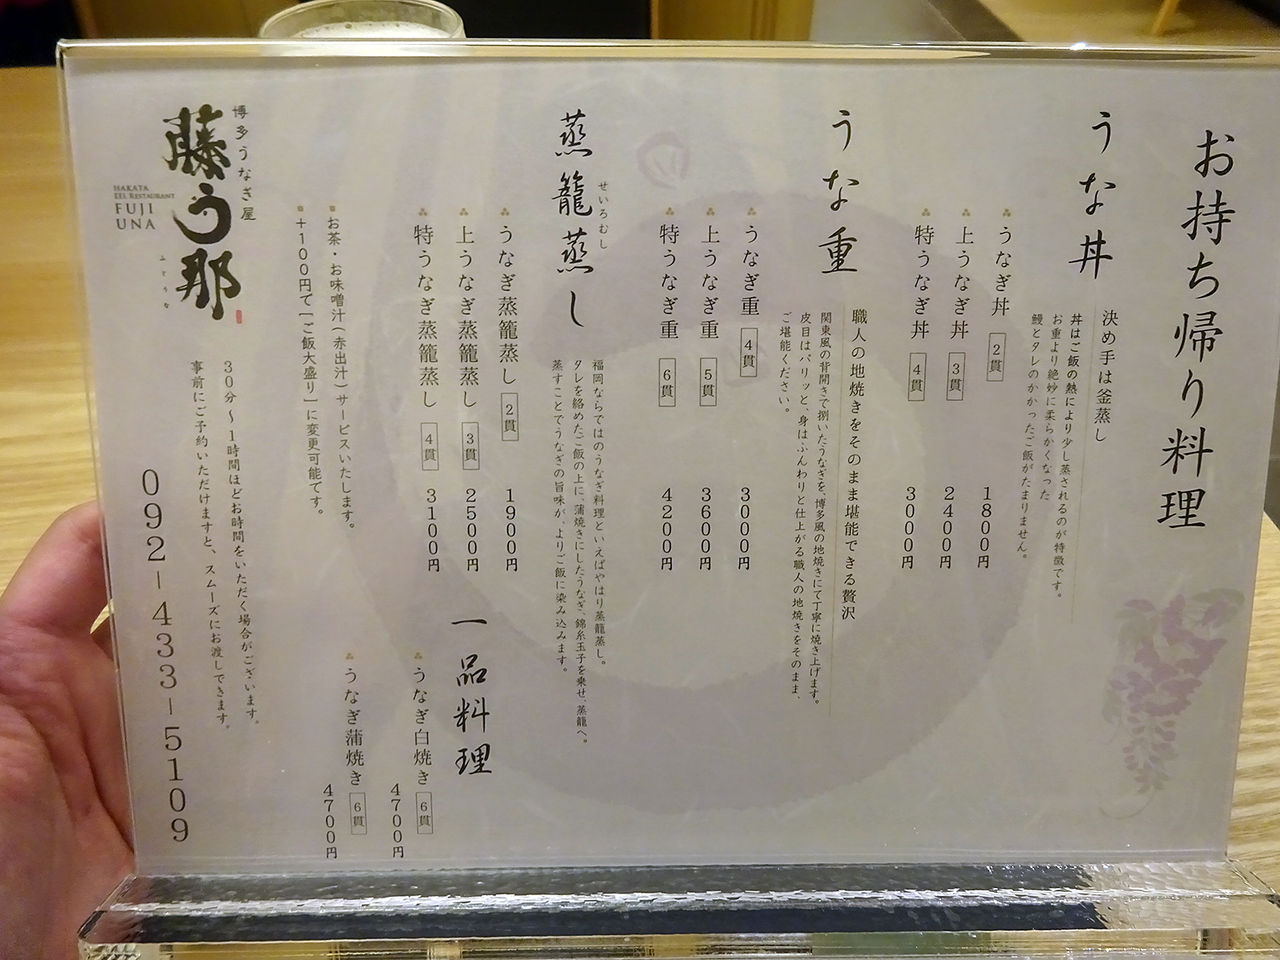 お持ち帰り料理
うな丼
決め手は釜蒸し
丼はご飯の熱により少し蒸されるのが特徴です。
お重より絶妙に柔らかくなった
鰻とタレのかかったご飯がたまりません。
うなぎ丼 2貫 1800円
上うなぎ丼 3貫 2400円
特うなぎ丼 4貫 3000円
うな重
職人の地焼きをそのまま堪能できる贅沢
関東風の背開きで捌いたうなぎを、博多風の地焼きにて丁寧に焼き上げます。
皮目はパリッと、身はふんわりと仕上がる職人の地焼きをそのまま、
ご堪能ください。
うなぎ重 4貫 3000円
上うなぎ重 5貫 3600円
特うなぎ重 6貫 4200円
せいろむし
蒸籠蒸し
福岡ならではのうなぎ料理といえばやはり蒸籠蒸し。
タレを絡めたご飯の上に、蒲焼きにしたうなぎ、錦糸玉子を乗せ、蒸籠へ。
蒸すことでうなぎの旨味が、よりご飯に染み込みます。
うなぎ蒸籠蒸し 2貫 1900円
上うなぎ蒸籠蒸し 3貫 2500円
特うなぎ蒸籠蒸し 4貫 3100円
一品料理
うなぎ白焼き 6貫 4700円
うなぎ蒲焼き 6貫 4700円
お茶・お味噌汁(赤出汁)サービスいたします。
+100円で「ご飯大盛り」に変更可能です。
博多うなぎ屋
藤う那
ふじうな
HAKATA
EEL RESTAURANT
FUJI
UNA
30分～1時間ほどお時間をいただく場合がございます。
事前にご予約いただけますと、スムーズにお渡しできます。
092-433-5109